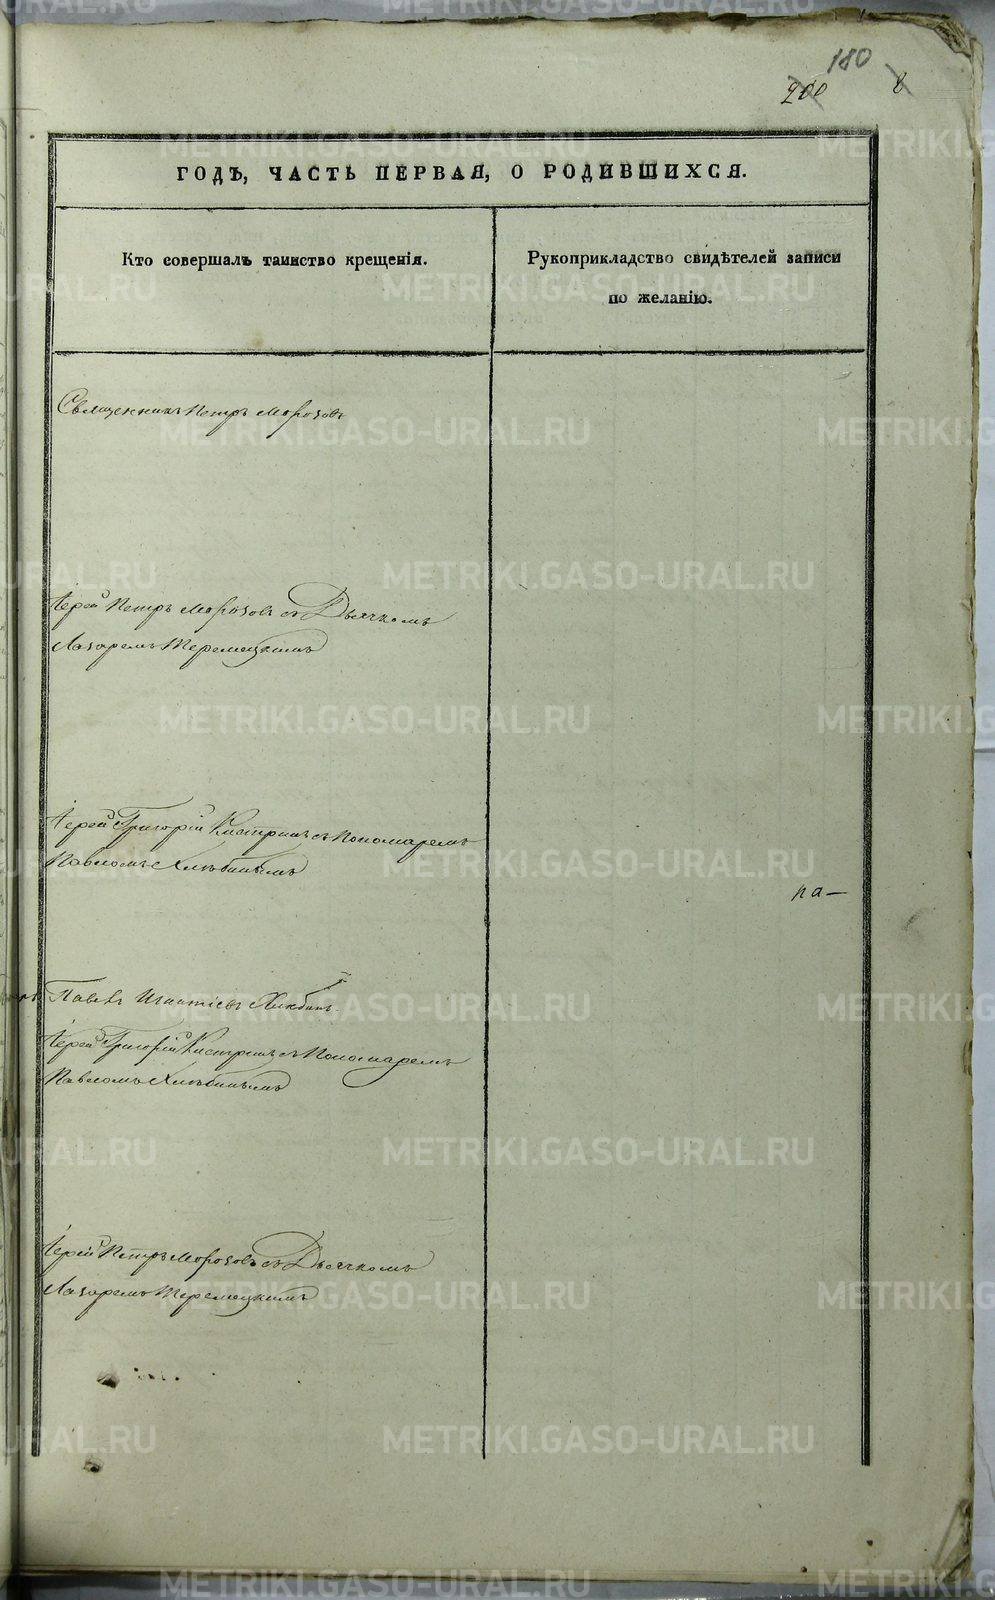 180
200 8
ГОДЪ, ЧАСТЬ ПЕРВАЯ, О РОДИВШИХСЯ.
Кто совершалъ таинство крещенія.
Рукоприкладство свидѣтелей записи
по желанію.
Священникъ Петръ Морозовъ
Іерей Петръ Морозовъ съ Дьячкомъ
Лазаремъ Теремецкимъ
Іерей Григорій Кистринъ съ Пономаремъ
Павломъ Хлѣбинымъ
на—
Павелъ Игнатіевъ Хлѣбинъ
Іерей Григорій Кистринъ съ Пономаремъ
Павломъ Хлѣбинымъ
Іерей Петръ Морозовъ съ Дьячкомъ
Лазаремъ Теремецкимъ
METRIKI.GASO-URAL.RU